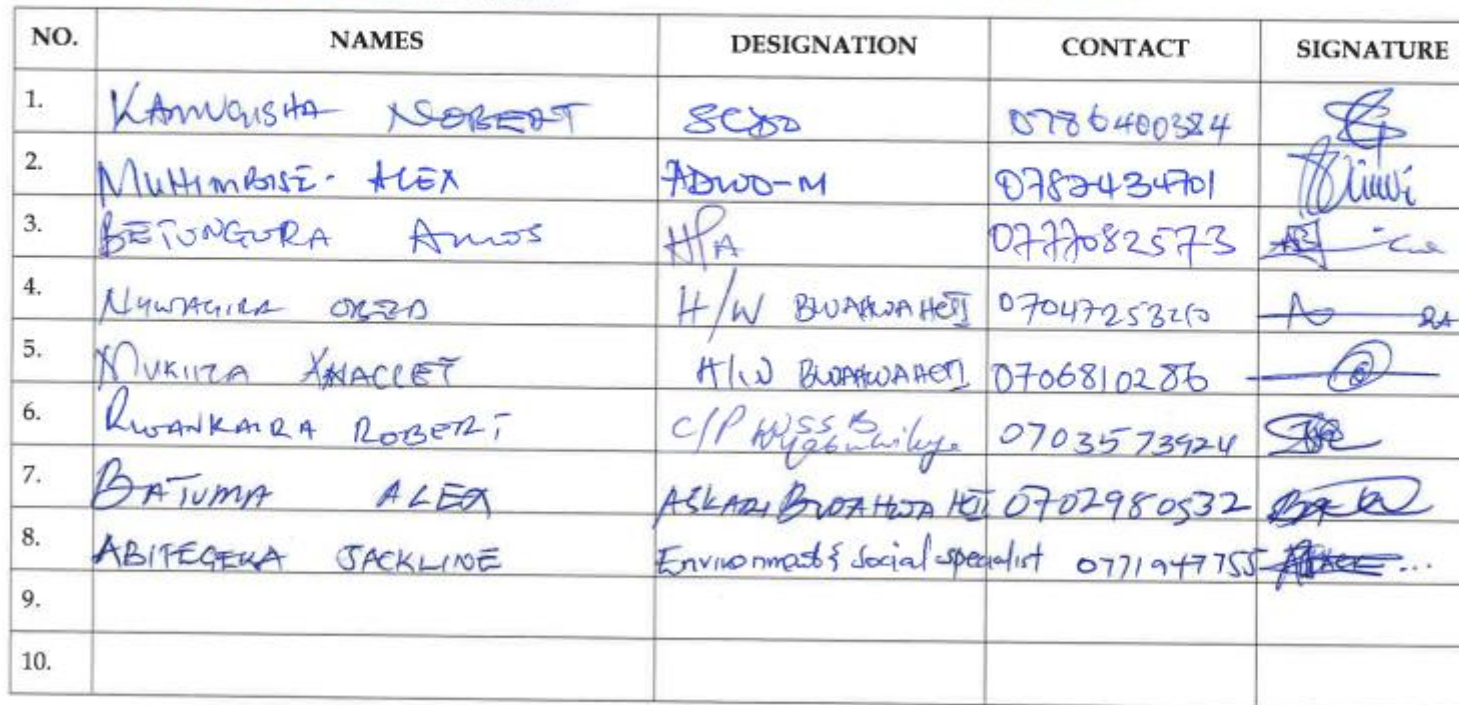 NO. NAMES DESIGNATION CONTACT SIGNATURE
1. KAMUGISHA NOBERT SCDO 0786400384
2. MUHIMBISE- ALEX ADWO-M 0782434701
3. BETUNGURA AMOS HPA 0777082573
4. OBED H/W BWAHWA HCII
5. MUKIIZA ANACLET H/W BWAHWA HCII 0706810286
6. RWANKAIRA ROBERT C/P WSSB 0703573924
7. BATUMA ALEX ASKARI BWAHWA HCII 0702980532
8. ABITEGEKA JACKLINE Environment & Social specialist 0771947755
9.
10.